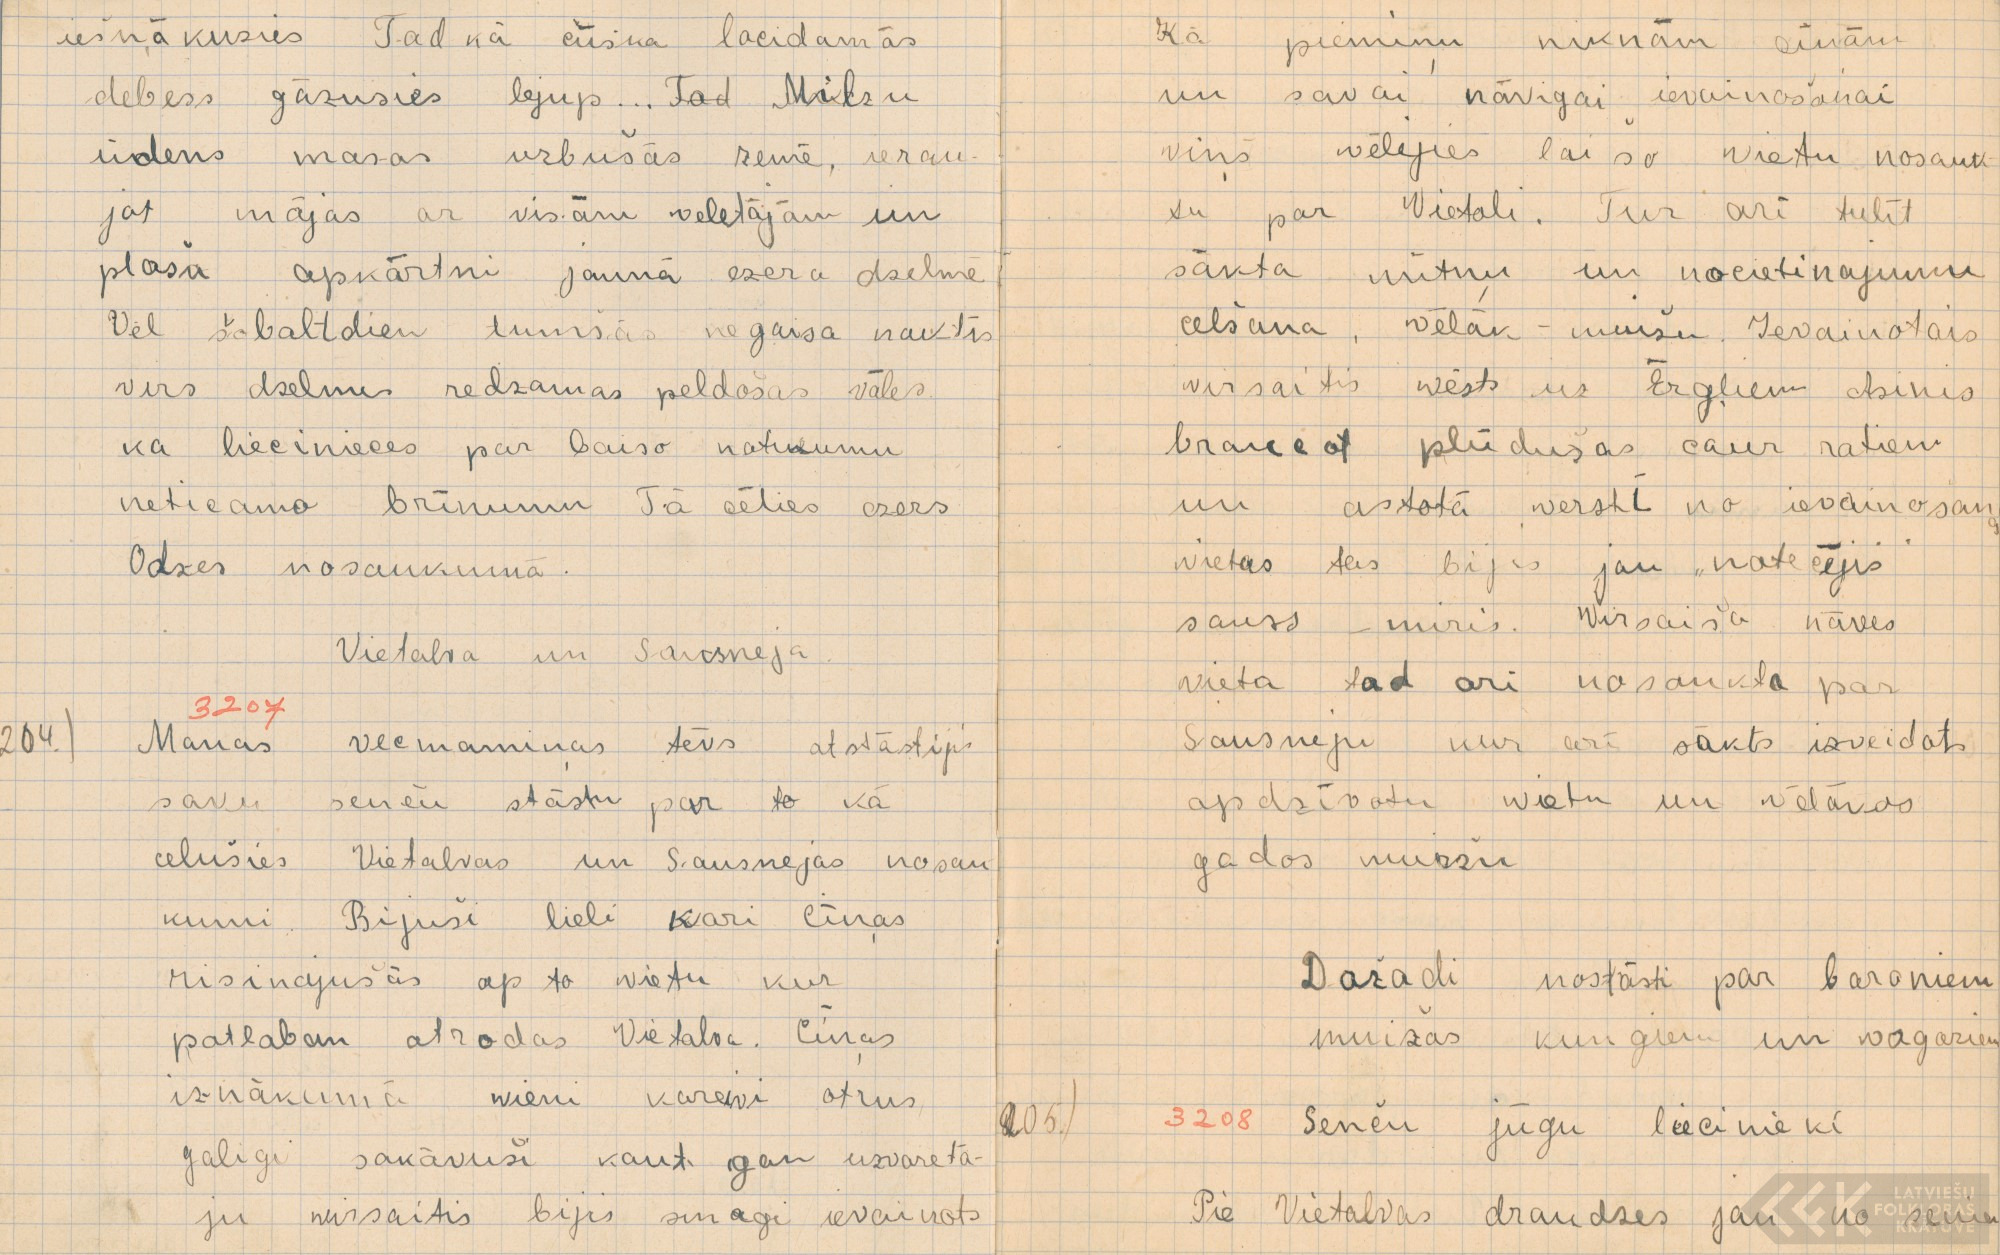 iešņākusies Tad kā čūska locidamās
debess gāzusies lejup... Tad Milzu
ūdens masas urbušās zemē, ierau-
jot mājas ar visām veletājām un
plašu apkārtni jaunā ezera dzelmē
Vēl šobaltdien tumšās negaisa naktīs
virs dzelmes redzamas peldošas vāles
kā liecinieces par baiso notikumu
neticamo brīnumu Tā cēlies ezers
Odzes nosaukumā.
Vietalva un Sausneja.
3207
204.) Manas vecmamiņas tēvs atstāstijis
savu senču stāstu par to kā
cēlušies Vietalvas un Sausnejas nosau
kumi. Bijuši lieli kari Cīņas
risinajušās ap to wietu kur
patlaban atrodas Vietalva. Cīņas
iznākumā wieni karewi otrus
galigi sakāvuši kaut gan uzvaretā-
ju wirsaitis bijis smagi ievainots
Kā pieminu niknām cīņām
un savai nāvigai ievainošanai
viņš vēlējies lai šo wietu nosauk
tu par Vietali. Tur arī tulīt
sākta mītņu un nocietinajumu
celšana, vēlāk - muižu. Ievainotais
wirsaitis wests uz Ērgļiem Asinis
braucot plūdušas caur ratiem
un astotā werstī no ievainošanas
wietas tas bijis jau „notecējis"
sauss - miris. Wirsaiša nāves
vieta tad ari nosaukta par
Sausneju kur arī sākts izveidots
apdzīvotu wietu un vēlākos
gados muižu
Dažadi nostāsti par baroniem
muižas kungiem un vagariem
205.) 3208 Senču jūgu liecinieki
Pie Vietalvas draudzes jau no seniem
LATVIEŠU
FOLKLORAS
KRĀTUVE